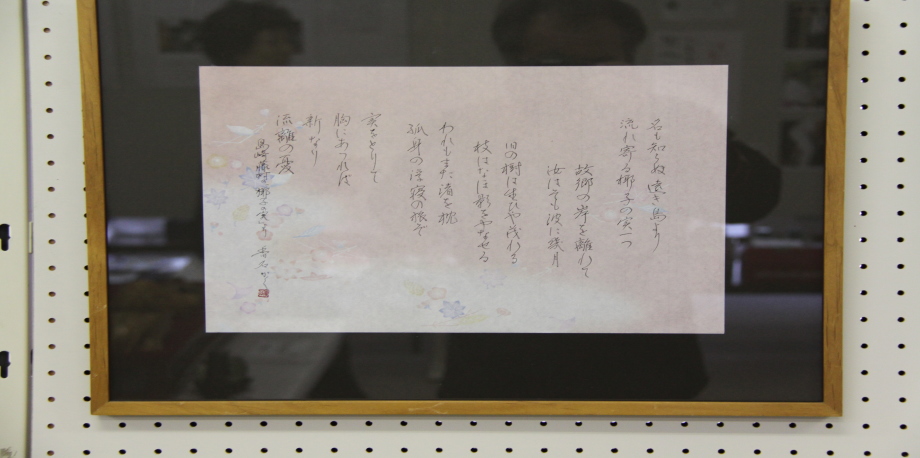 名も知らぬ遠き島より
流れ寄る椰子の実一つ
故郷の岸を離れて
汝はそも波に幾月
旧の樹は生ひや茂れる
枝はなほ影をやなせる
われもまた渚を枕
孤身の浮寝の旅ぞ
実をとりて
胸にあつれば
新なり
流離の憂
島崎藤村の椰子の実より